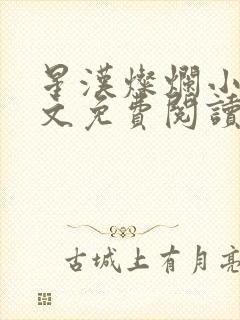 星漢燦爛小
文免費閱讀
古城上有月亮